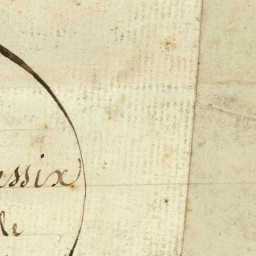 essix
le